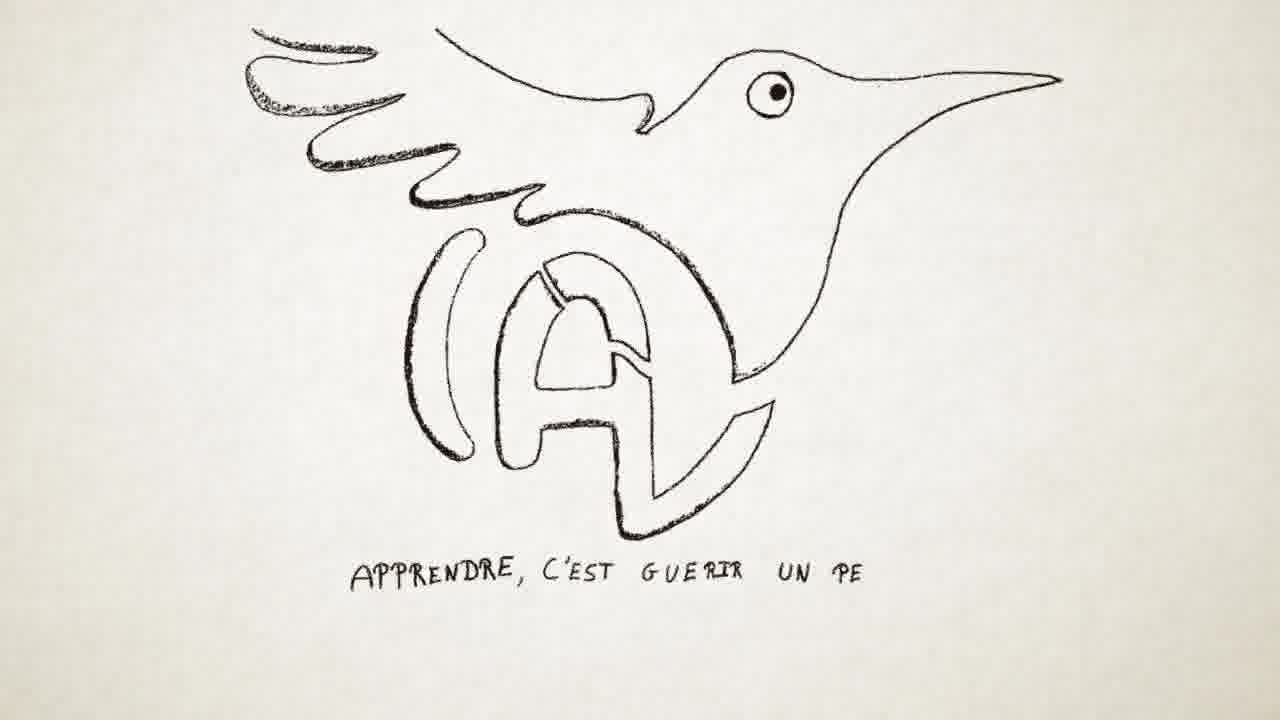 APPRENDRE, C'EST GUERIR UN PE